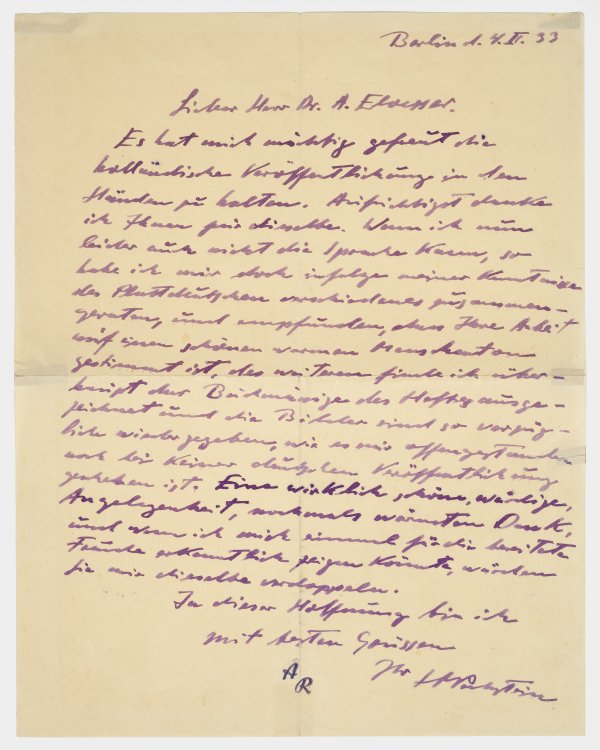 Berlin d. 4. II. 33
Lieber Herr Dr. A. Eloesser.
Es hat mich mächtig gefreut die
holländische Veröffentlichung in den
Händen zu halten. Aufrichtigst danke
ich Ihnen für dieselbe. Wenn ich nun
leider auch nicht die Sprache kann, so
habe ich mir doch infolge meiner Kenntnisse
des Plattdeutschen verschiedenes zusammen-
geraten, und empfunden, dass Ihre Arbeit
auf einen schönen warmen Menschenton
gestimmt ist, des weiteren finde ich über-
haupt das Buchmässige des Heftes ausge-
zeichnet und die Bilder sind so vorzüg-
lich wiedergegeben, wie es mir offengestanden
noch bei keiner deutschen Veröffentlichung
geschehen ist. Eine wirklich schöne, würdige,
Angelegenheit, nochmals wärmsten Dank,
und wenn ich mich einmal für die bereitete
Freude erkenntlich zeigen könnte, würden
sie mir dieselbe verdoppeln.
In dieser Hoffnung bin ich
mit besten Grüssen
Ihr HMPechstein
AR